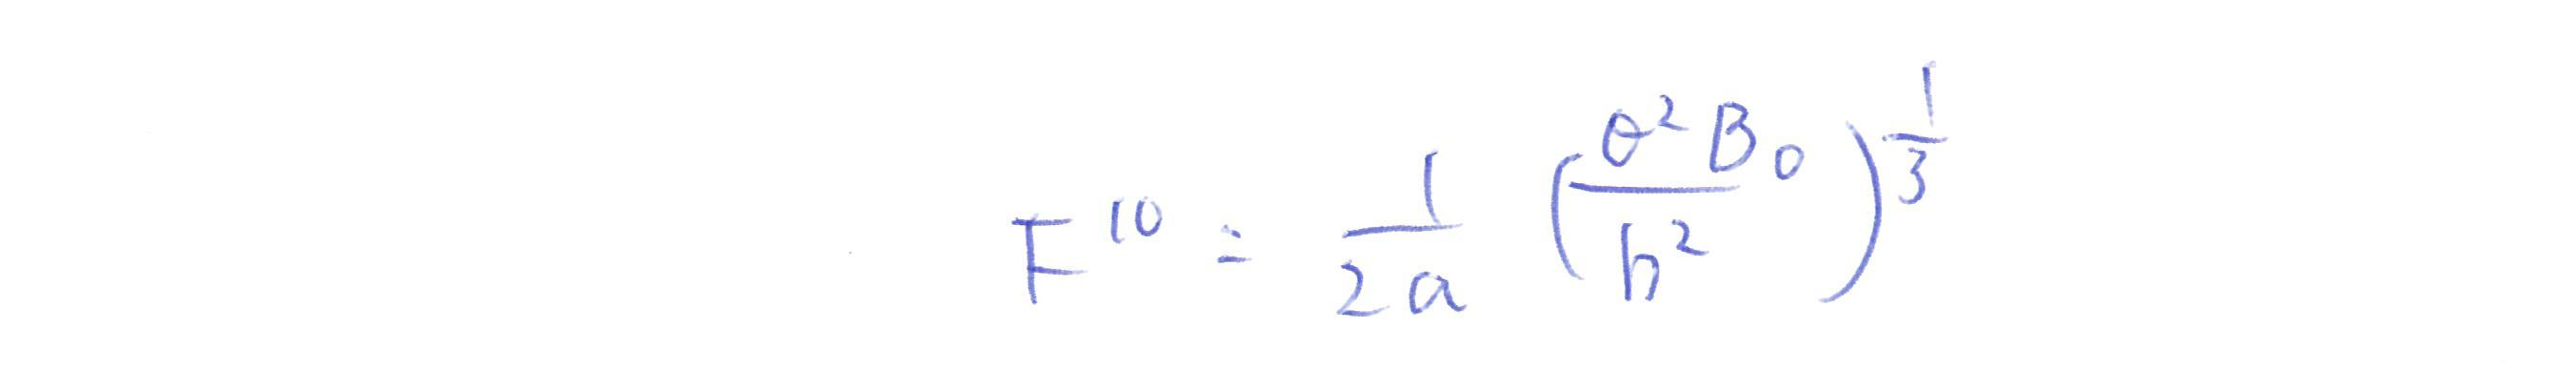 F^{10} = \frac{1}{2a} \left( \frac{\theta^2 B_0}{h^2} \right)^{\frac{1}{3}}